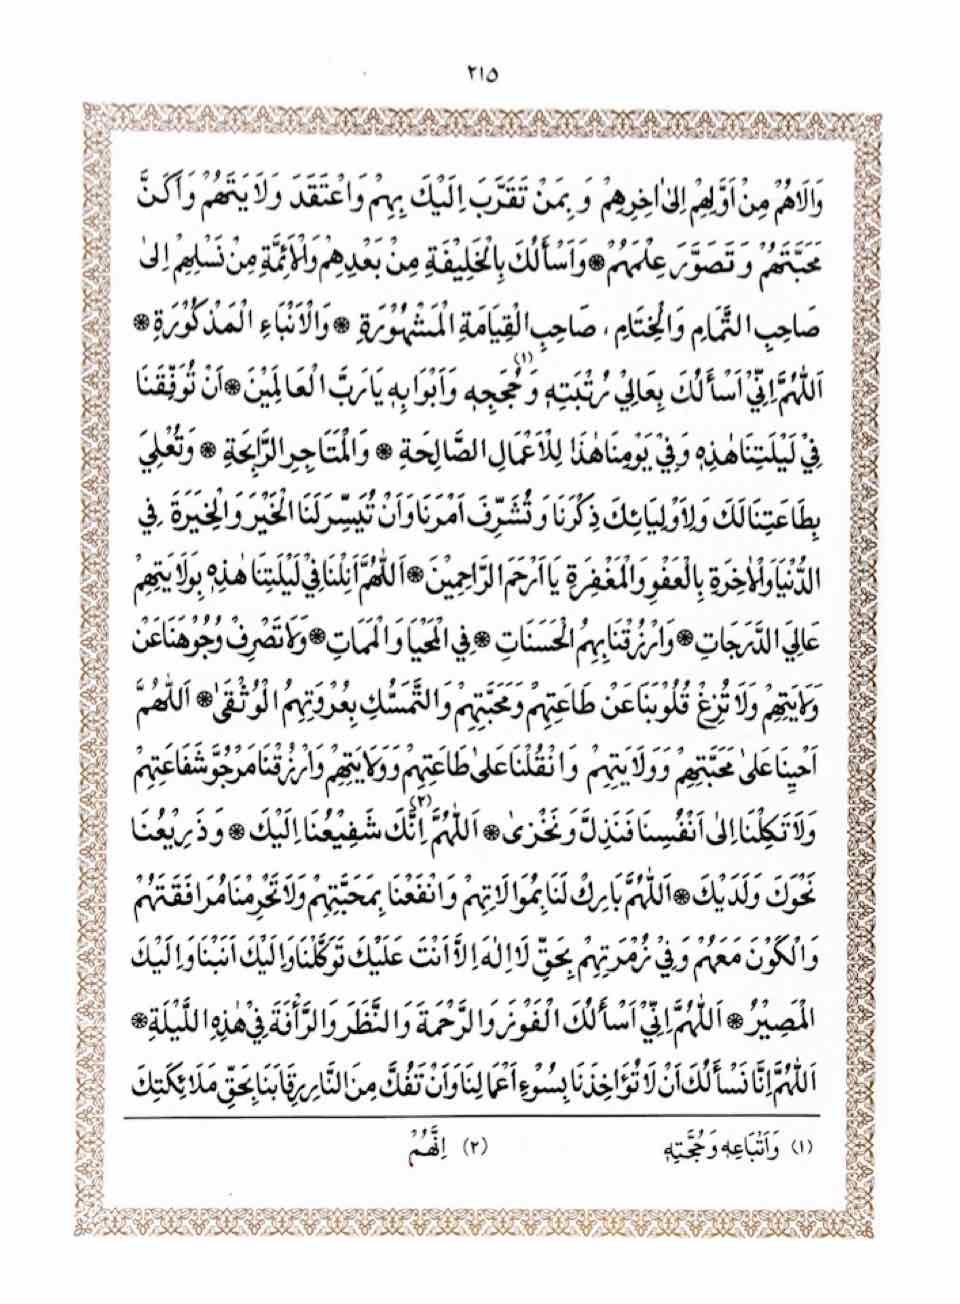 ٢١٥
وَالَاهُمْ مِنْ اَوَّلِهِمْ اِلىٰ اٰخِرِهِمْ وَ بِمَنْ تَقَرَّبَ اِلَيْكَ بِهِمْ وَاعْتَقَدَ وَلَايَتَهُمْ وَاَكَنَّ
مَحَبَّتَهُمْ وَ تَصَوَّرَ عِلْمَهُمْ ۞ وَاَسْأَلُكَ بِالْخَلِيْفَةِ مِنْ بَعْدِهِمْ وَالْاَئِمَّةِ مِنْ نَسْلِهِمْ اِلىٰ
صَاحِبِ التَّمَامِ وَالْخِتَامِ، صَاحِبِ الْقِيَامَةِ الْمَشْهُوْرَةِ ۞ وَالْاَنْبَاءِ الْمَذْكُوْرَةِ ۞
اَللّٰهُمَّ اِنِّيْ اَسْأَلُكَ بِعَالِيْ رُتْبَتِهٖ وَحُجَجِهٖ (١) وَاَبْوَابِهٖ يَارَبَّ الْعَالَمِيْنَ ۞ اَنْ تُوَفِّقَنَا
فِيْ لَيْلَتِنَا هٰذِهٖ وَفِيْ يَوْمِنَا هٰذَا لِلْاَعْمَالِ الصَّالِحَةِ ۞ وَالْمَتَاجِرِ الرَّابِحَةِ ۞ وَتُعْلِيَ
بِطَاعَتِنَا لَكَ وَلِاَوْلِيَائِكَ ذِكْرَنَا وَ تُشَرِّفَ اَمْرَنَا وَاَنْ تُيَسِّرَ لَنَا الْخَيْرَ وَالْخِيَرَةَ فِي
الدُّنْيَا وَالْاٰخِرَةِ بِالْعَفْوِ وَالْمَغْفِرَةِ يَا اَرْحَمَ الرَّاحِمِيْنَ ۞ اَللّٰهُمَّ اَنِلْنَا فِيْ لَيْلَتِنَا هٰذِهٖ بِوَلَايَتِهِمْ
عَالِيَ الدَّرَجَاتِ ۞ وَارْزُقْنَا بِهِمُ الْحَسَنَاتِ ۞ فِي الْمَحْيَا وَالْمَمَاتِ ۞ وَلَا تَصْرِفْ وُجُوْهَنَا عَنْ
وَلَايَتِهِمْ وَلَا تُزِغْ قُلُوْبَنَا عَنْ طَاعَتِهِمْ وَمَحَبَّتِهِمْ وَالتَّمَسُّكِ بِعُرْوَتِهِمُ الْوُثْقىٰ ۞ اَللّٰهُمَّ
اَحْيِنَا عَلىٰ مَحَبَّتِهِمْ وَوَلَايَتِهِمْ وَانْقُلْنَا عَلىٰ طَاعَتِهِمْ وَوَلَايَتِهِمْ وَارْزُقْنَا مَرْجُوَّ شَفَاعَتِهِمْ
وَلَا تَكِلْنَا اِلىٰ اَنْفُسِنَا فَنَذِلَّ وَنَخْزىٰ ۞ اَللّٰهُمَّ اِنَّكَ (٢) شَفِيْعُنَا اِلَيْكَ ۞ وَذَرِيْعُنَا
نَحْوَكَ وَلَدَيْكَ ۞ اَللّٰهُمَّ بَارِكْ لَنَا بِمُوَالَاتِهِمْ وَانْفَعْنَا بِمَحَبَّتِهِمْ وَلَا تَحْرِمْنَا مُرَافَقَتَهُمْ
وَالْكَوْنَ مَعَهُمْ وَفِيْ زُمْرَتِهِمْ بِحَقِّ لَا اِلٰهَ اِلَّا اَنْتَ عَلَيْكَ تَوَكَّلْنَا وَاِلَيْكَ اَنَبْنَا وَاِلَيْكَ
الْمَصِيْرُ ۞ اَللّٰهُمَّ اِنِّيْ اَسْأَلُكَ الْفَوْزَ وَالرَّحْمَةَ وَالنَّظَرَ وَالرَّأْفَةَ فِيْ هٰذِهِ اللَّيْلَةِ ۞
اَللّٰهُمَّ اِنَّا نَسْأَلُكَ اَنْ لَا تُؤَاخِذَنَا بِسُوْءِ اَعْمَالِنَا وَاَنْ تَفُكَّ مِنَ النَّارِ رِقَابَنَا بِحَقِّ مَلَائِكَتِكَ
(١) وَاَتْبَاعِهٖ وَحُجَّتِهٖ (٢) اِنَّهُمْ